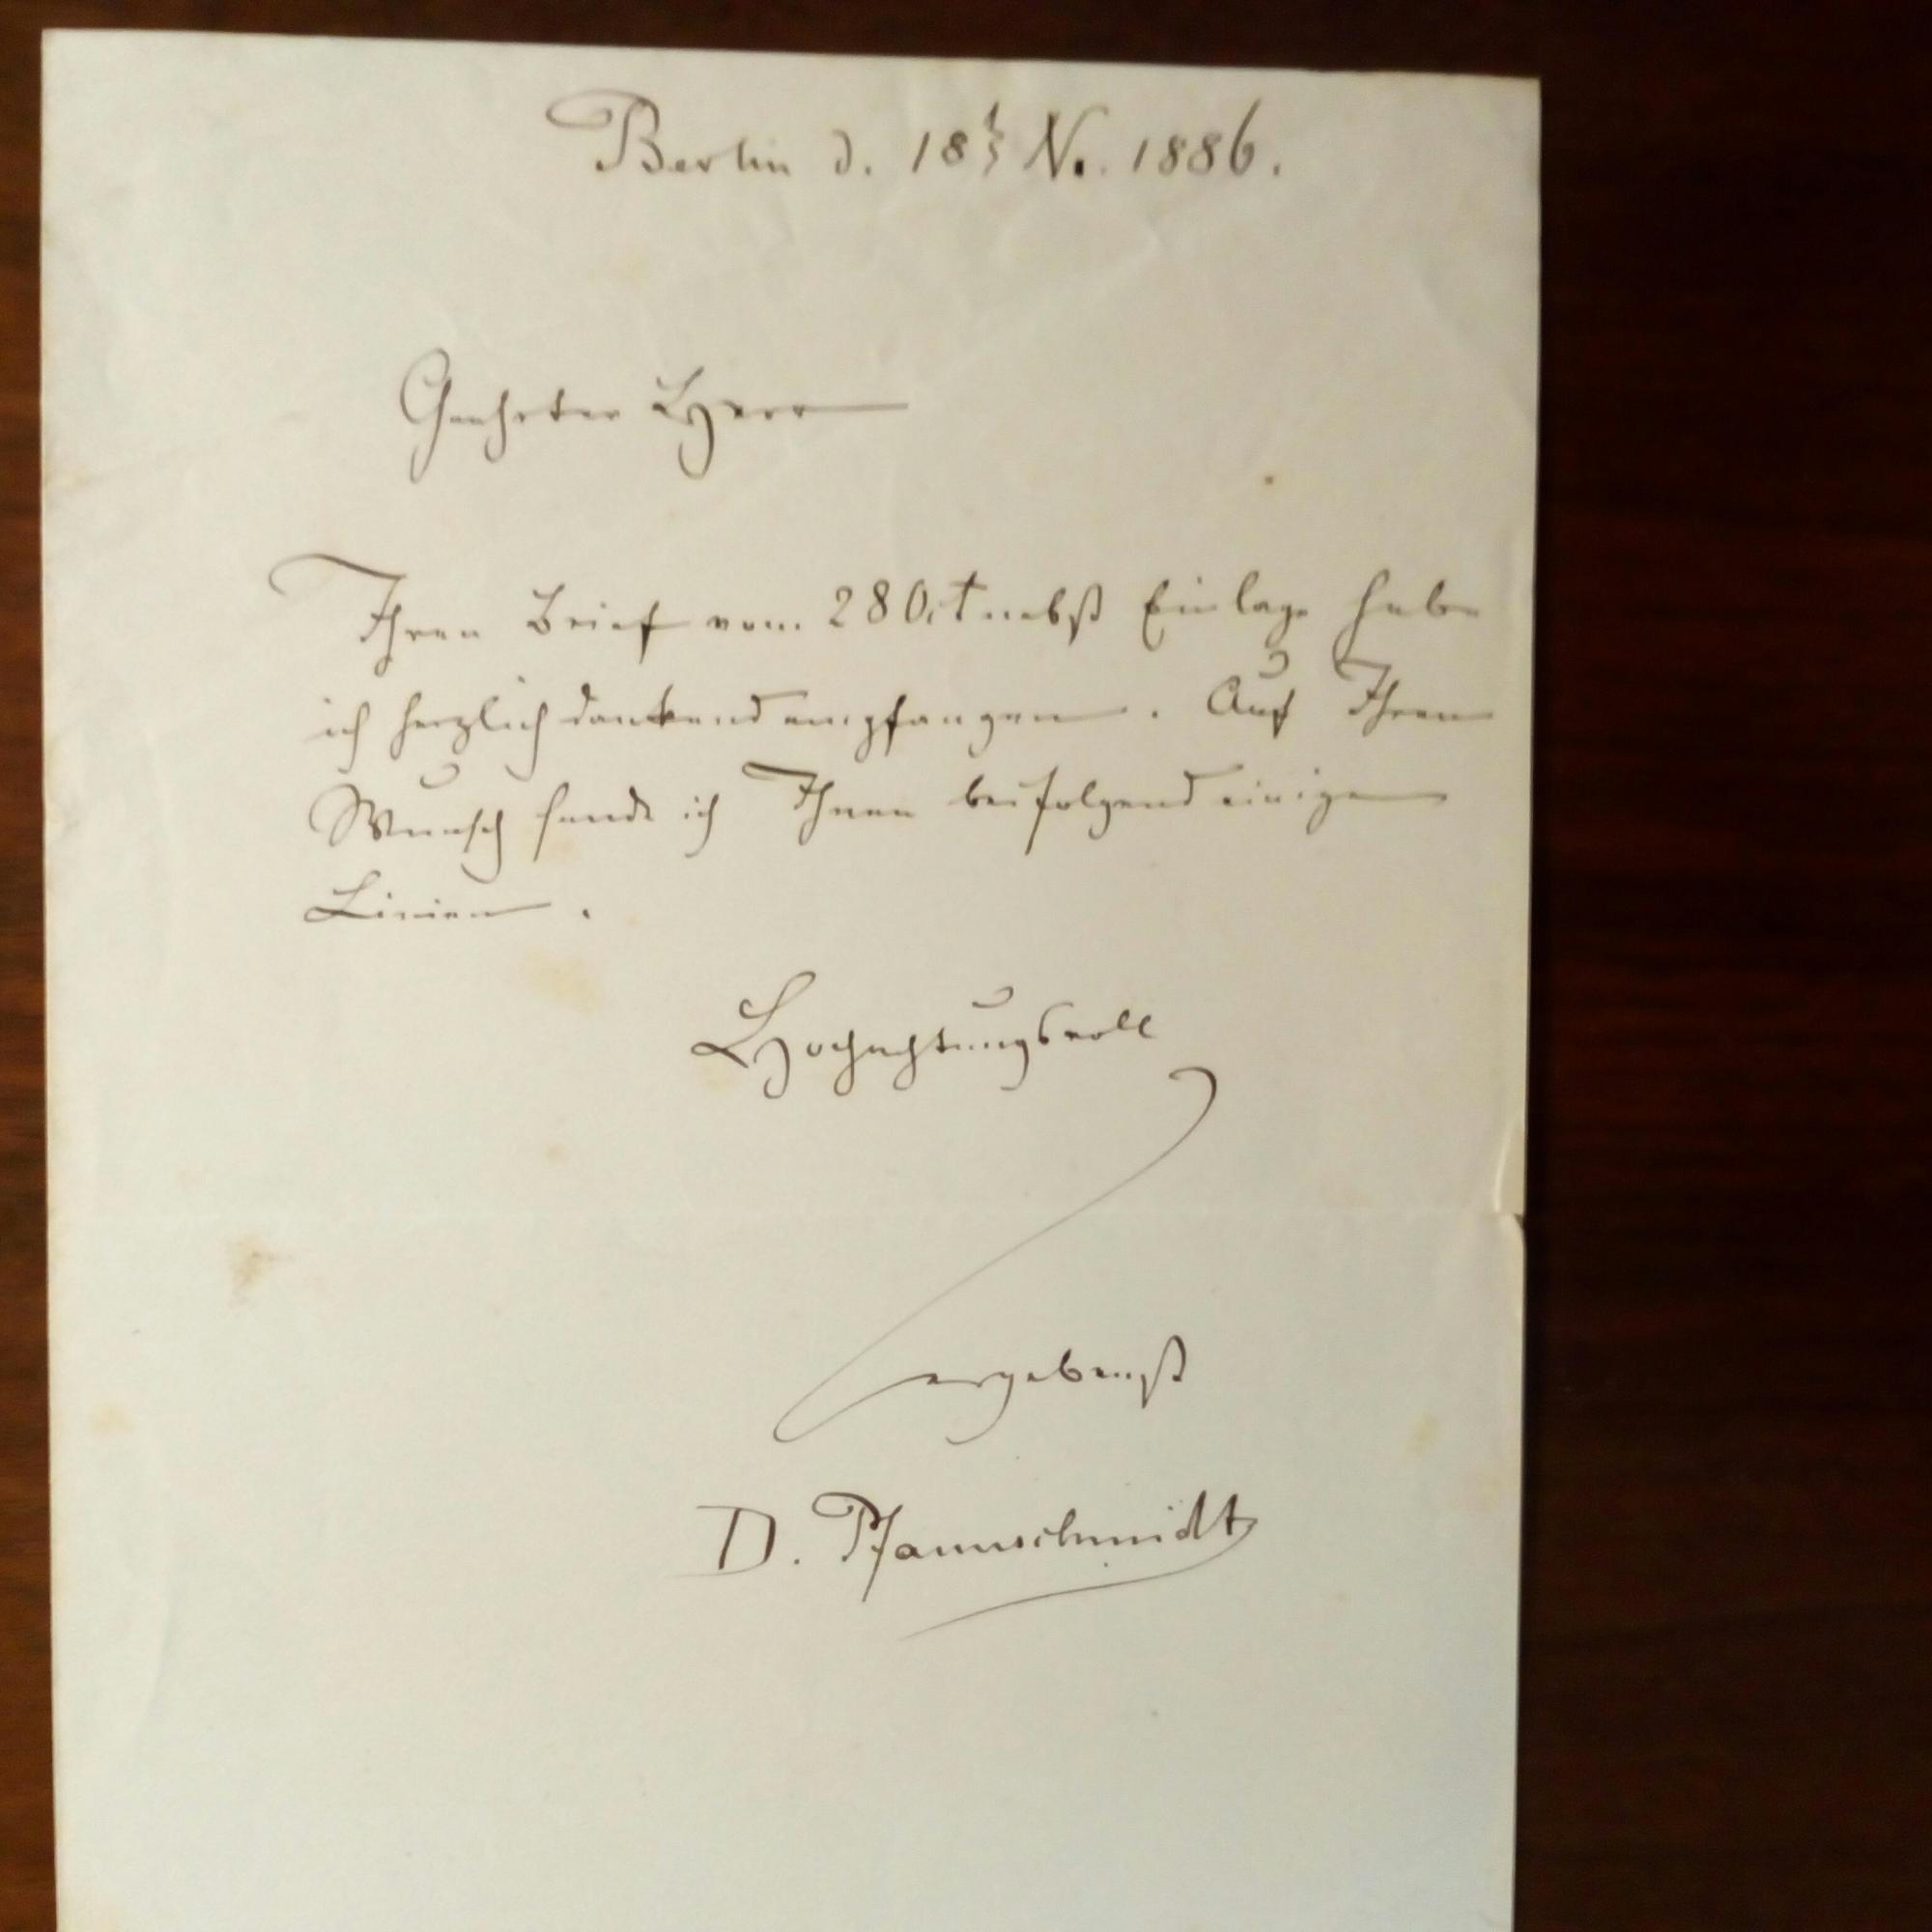 Berlin d. 18t No. 1886.
Geehrter Herr
Ihren Brief vom 28 Oct nebst Einlage habe
ich herzlich dankend empfangen. Auf Ihren
Wunsch sende ich Ihnen beifolgend einige
Linien.
Hochachtungsvoll
ergebenst
D. Pfannschmidt